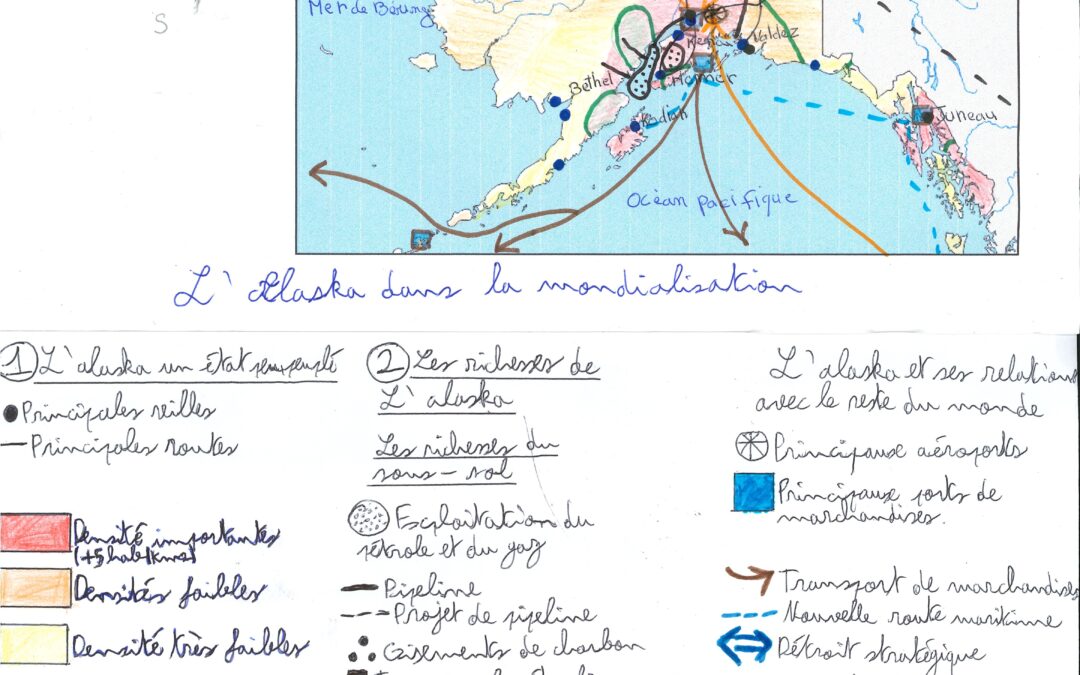 Mer de Béring
S
Valdez
Kenai
Bethel
Homer
Kodiak
Juneau
Océan pacifique
L'Alaska dans la mondialisation
1 L'alaska un état peu peuplé
Principales villes
Principales routes
Densité importantes
(+5 hab/km2)
Densités faibles
Densité très faibles
2 Les richesses de
L'alaska
Les richesses du
sous-sol
Exploitation du
pétrole et du gaz
Pipeline
Projet de pipeline
Gisements de charbon
L'alaska et ses relations
avec le reste du monde
Principaux aéroports
Principaux ports de
marchandises.
Transport de marchandises
Nouvelle route maritime
Détroit stratégique